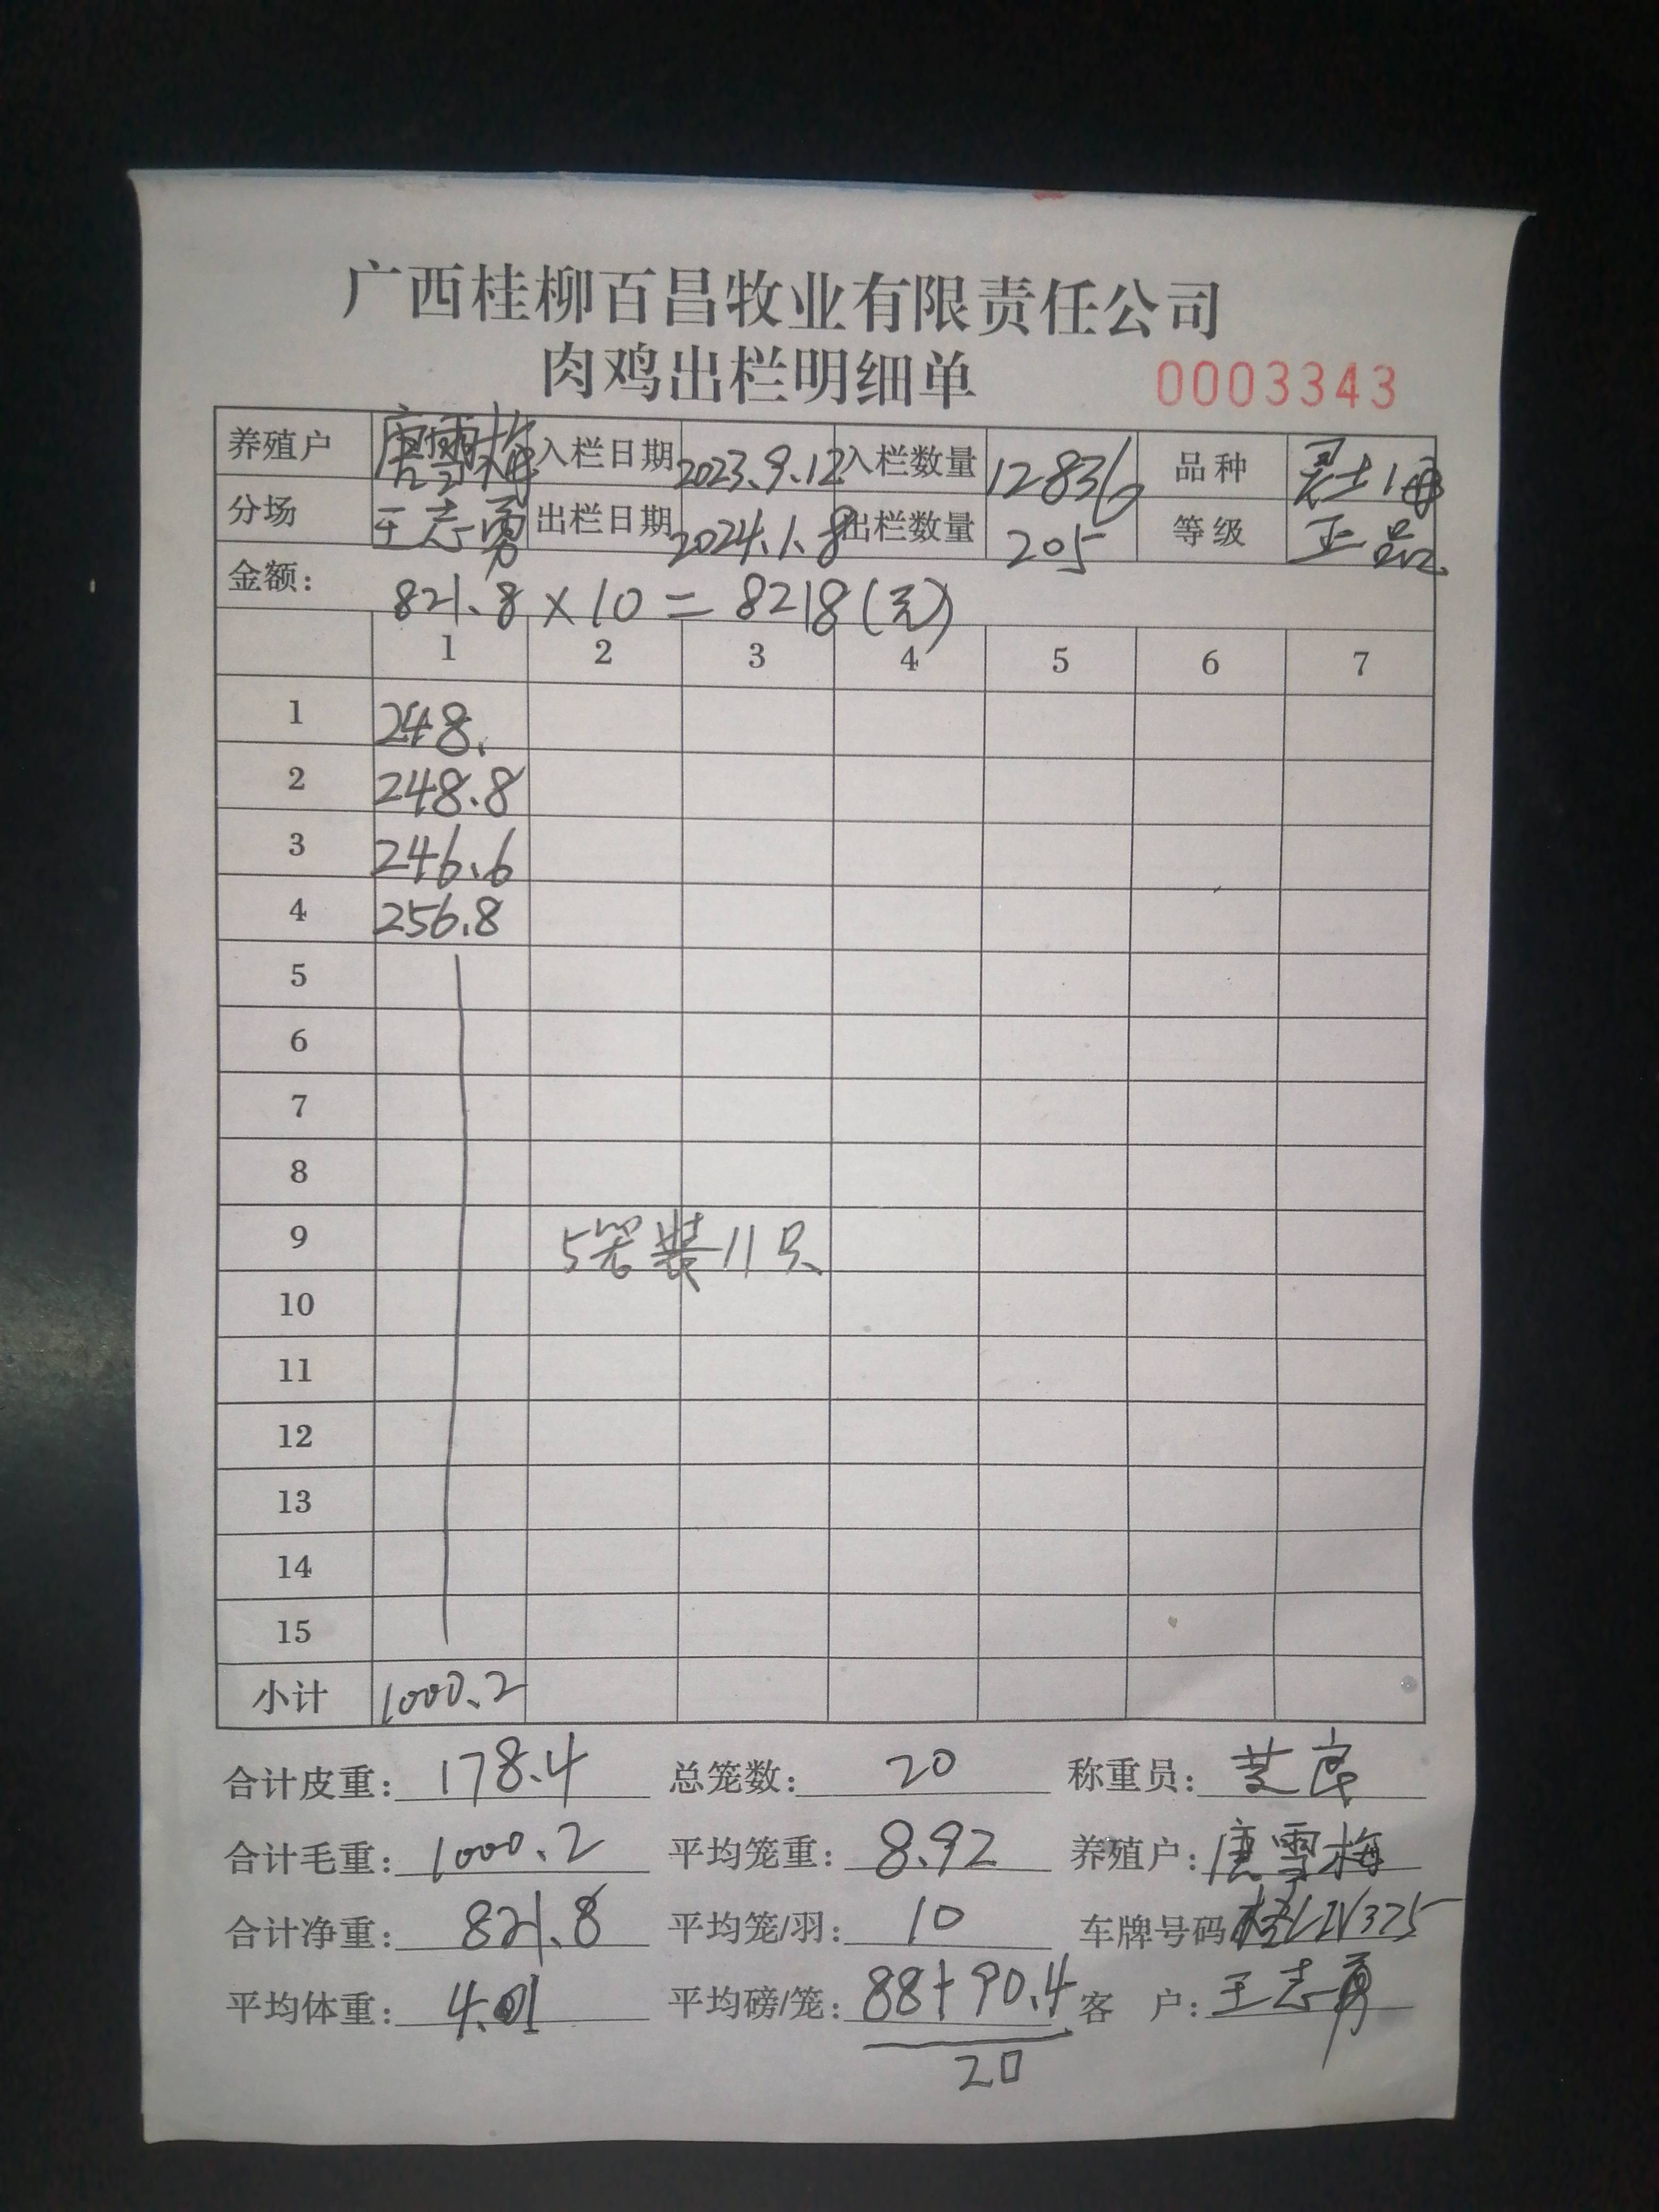 广西桂柳百昌牧业有限责任公司
肉鸡出栏明细单 0003343
养殖户 唐雪梅 入栏日期 2023.9.12 入栏数量 12836 品种 土1
分场 王志勇 出栏日期 2024.1.8 出栏数量 205 等级 正品
金额: 821.8×10=8218(元)
1 2 3 4 5 6 7
1 248.
2 248.8
3 246.6
4 256.8
5
6
7
8
9 5笼装11只
10
11
12
13
14
15
小计 1000.2
合计皮重: 178.4 总笼数: 20 称重员:
合计毛重: 1000.2 平均笼重: 8.92 养殖户: 唐雪梅
合计净重: 821.8 平均笼/羽: 10 车牌号码
平均体重: 4.01 平均磅/笼: 88+90.4 客 户: 王志勇
20